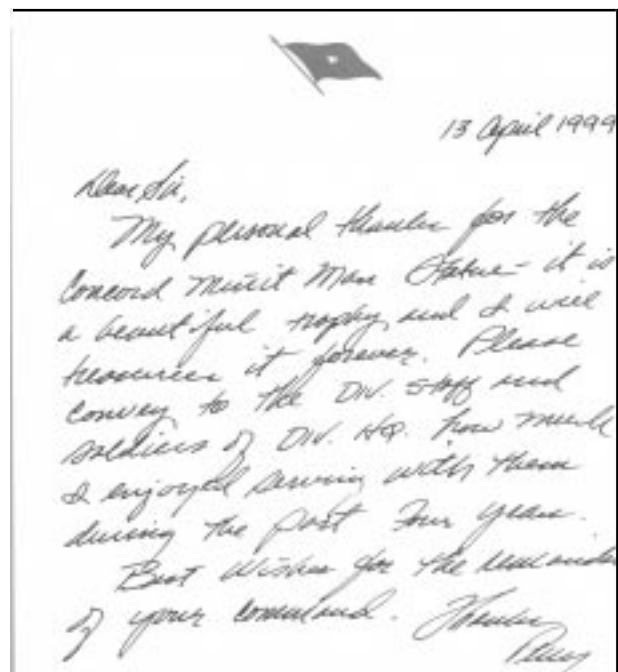 13 April 1999
Dear Sir,
My personal thanks for the
Concord Minit Man Statue - it is
a beautiful trophy and I will
treasure it forever. Please
convey to the Div. Staff and
soldiers of Div. HQ. how much
I enjoyed serving with them
during the past four years.
Best Wishes for the remainder
of your command. Thanks